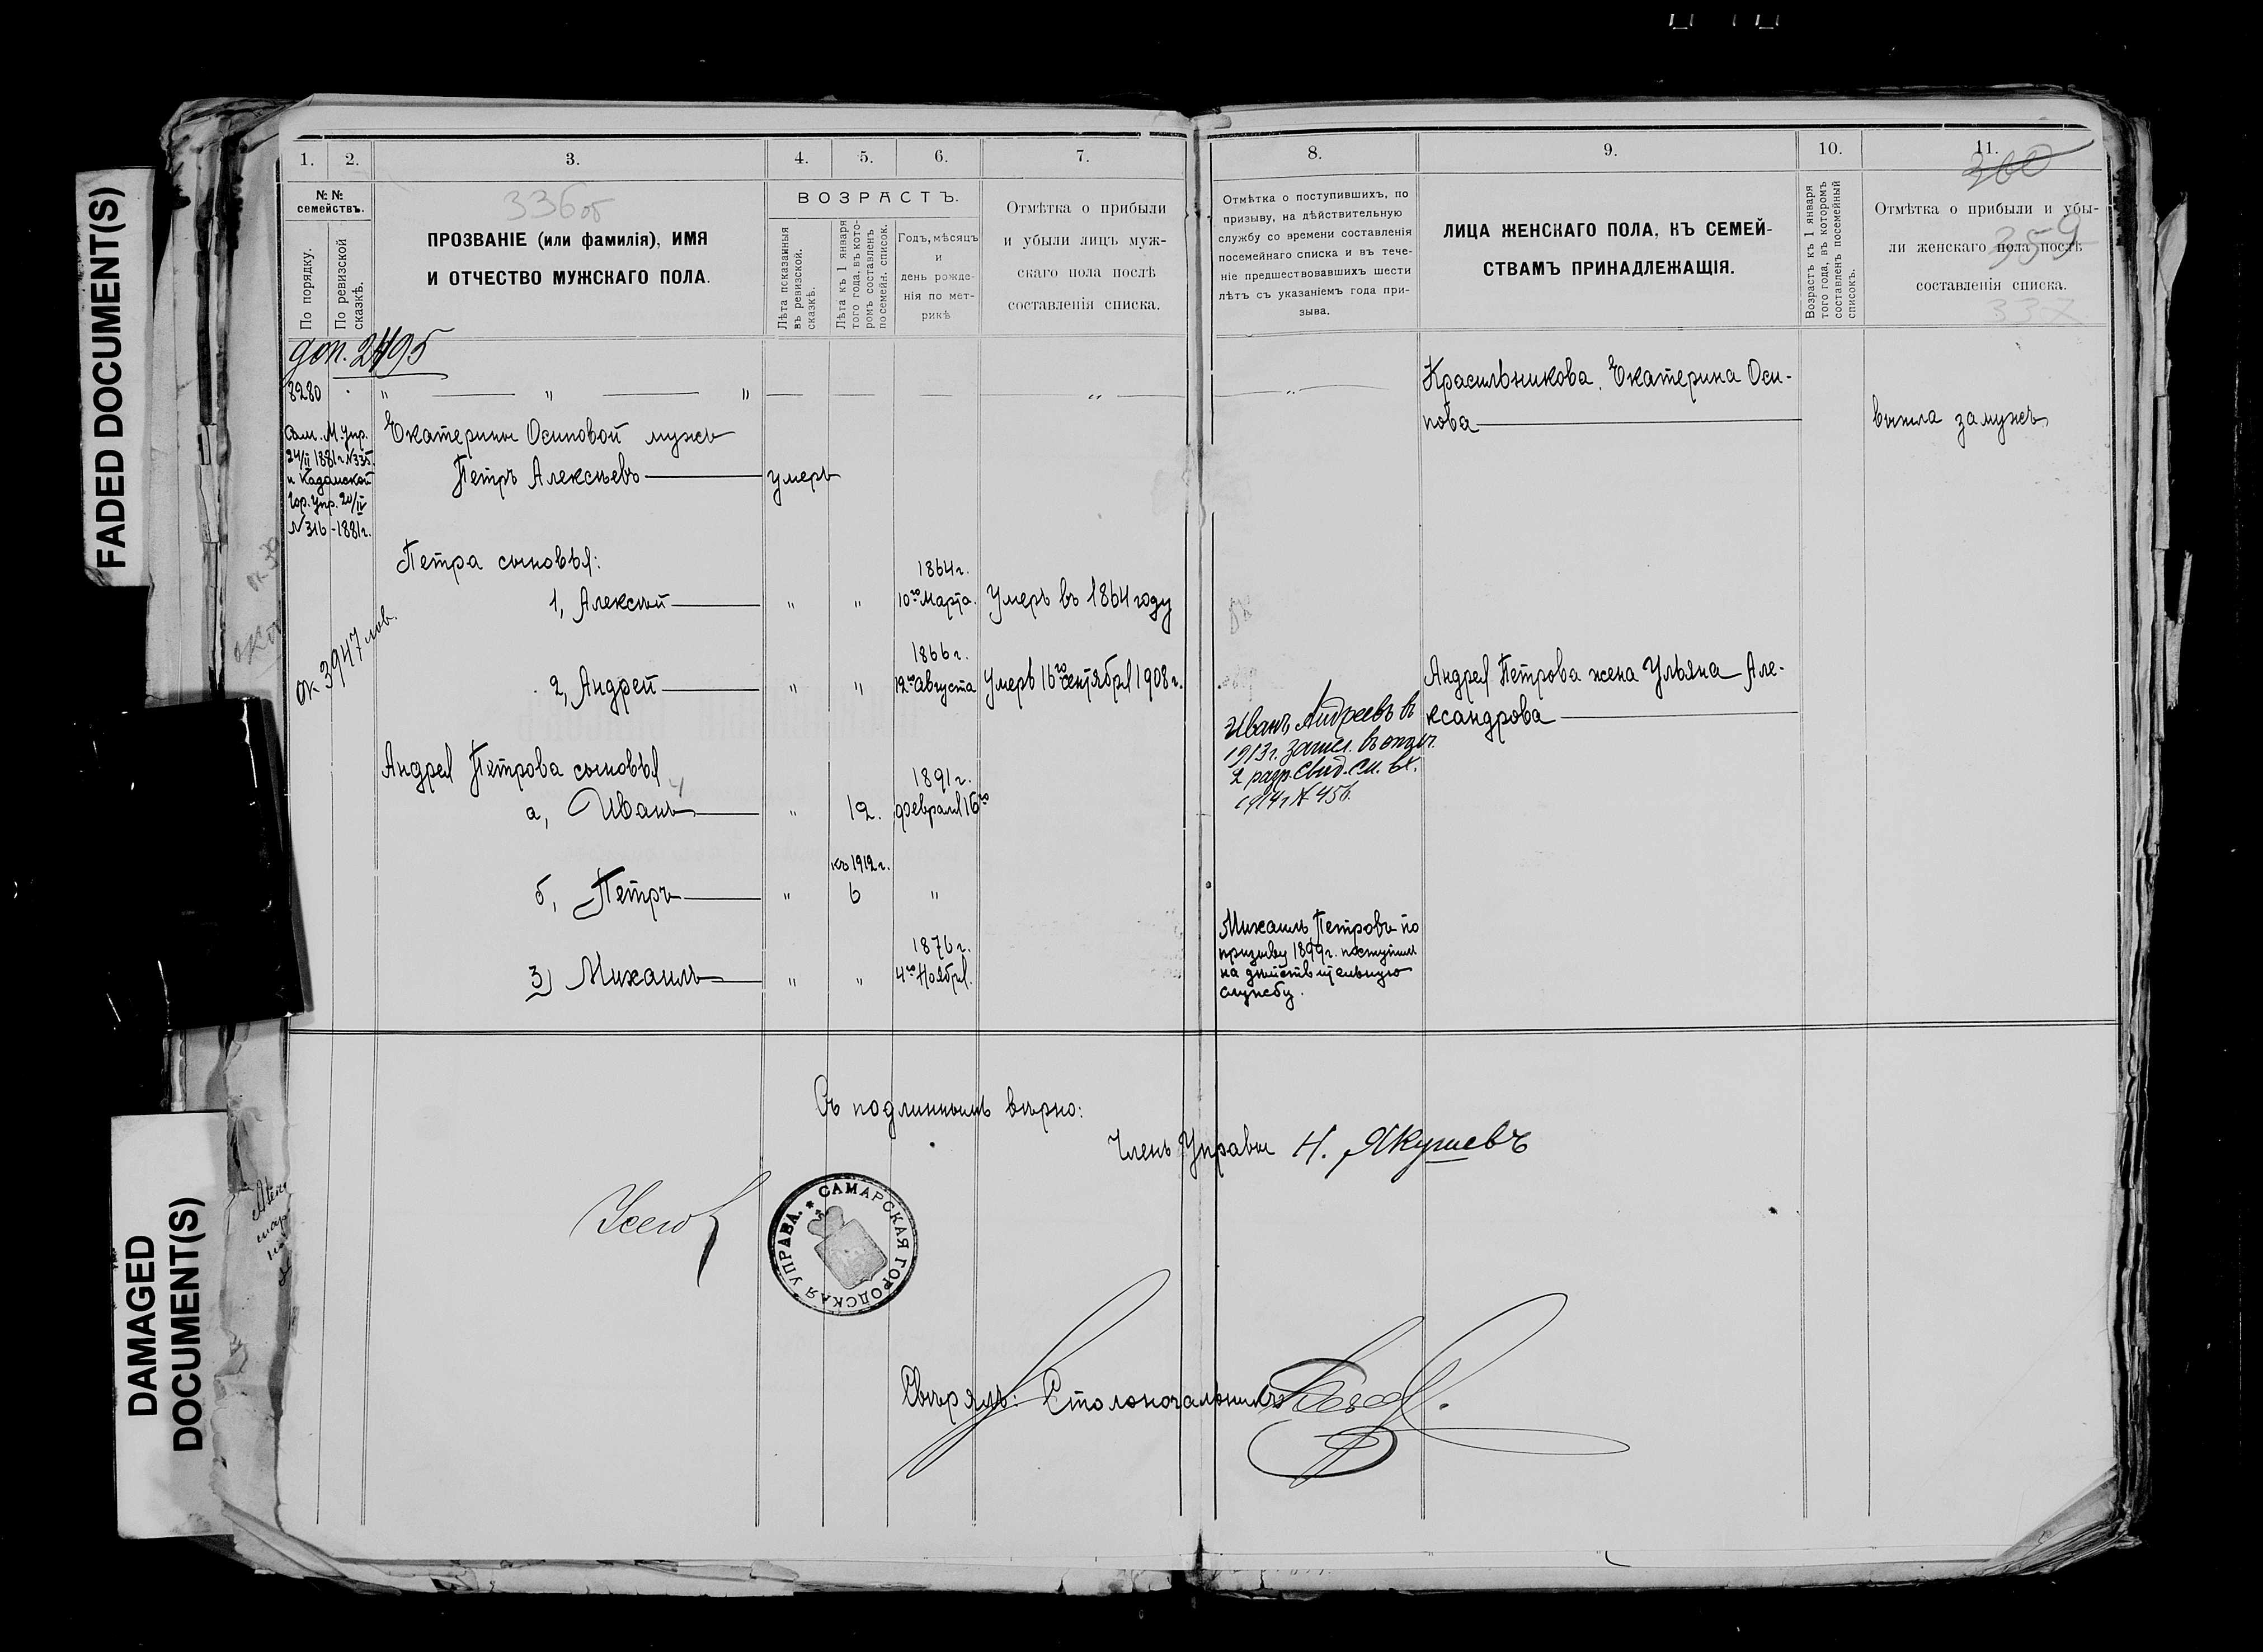 FADED DOCUMENT(S)
DAMAGED
DOCUMENT(S)
1. 2. 3. 4. 5. 6. 7.
№ №
семействъ.
По порядку.
По ревизской
сказкѣ.
336 об
ПРОЗВАНІЕ (или фамилія), ИМЯ
И ОТЧЕСТВО МУЖСКАГО ПОЛА.
ВОЗРАСТЪ.
Лѣта показанныя
въ ревизской.
сказкѣ.
Лѣта къ 1 января
того года, въ кото-
ромъ составленъ
посемейн. список.
Годъ, мѣсяцъ
и
день рожде-
нія по мет-
рикѣ
Отмѣтка о прибыли
и убыли лицъ муж-
скаго пола послѣ
составленія списка.
доп. 2495
8280 " " "
Сам. М. Упр.
24/II 1881 г. № 335
и Кадомской
Гор. Упр. 20/IV
№ 316 - 1881 г.
Екатерины Осиповой мужъ
Петръ Алексѣевъ умеръ
Петра сыновья:
1864 г.
1, Алексѣй " " 10го Марта. Умеръ въ 1864 году
ок 3947
1866 г.
2, Андрей " " 12го Августа Умеръ 16го сентября 1908 г.
Андрея Петрова сыновья
1891 г.
а, Иванъ " 12. февраля 16го
къ 1912 г.
б, Петръ " 6 "
1876 г.
3) Михаилъ " " 4го Ноября.
8. 9. 10. 11.
Отмѣтка о поступившихъ, по
призыву, на дѣйствительную
службу со времени составленія
посемейнаго списка и въ тече-
ніе предшествовавшихъ шести
лѣтъ съ указаніемъ года при-
зыва.
ЛИЦА ЖЕНСКАГО ПОЛА, КЪ СЕМЕЙ-
СТВАМЪ ПРИНАДЛЕЖАЩІЯ.
Возрастъ къ 1 января
того года, въ которомъ
составленъ посемейный
списокъ.
360
Отмѣтка о прибыли и убы-
ли женскаго пола послѣ
составленія списка.
359
337
Красильникова, Екатерина Оси-
пова
вышла замужъ
Андрея Петрова жена Ульяна Але-
ксандрова
Иванъ Андреевъ въ
1913 г. зачисл. въ ополч.
2 разр. свид. см. вх.
1914 г. № 456.
Михаилъ Петровъ по
призыву 1899 г. поступилъ
на дѣйствительную
службу.
Съ подлиннымъ вѣрно:
Членъ Управы Н. Якушевъ
САМАРСКАЯ ГОРОДСКАЯ УПРАВА.
Свѣрялъ: Столоначальникъ